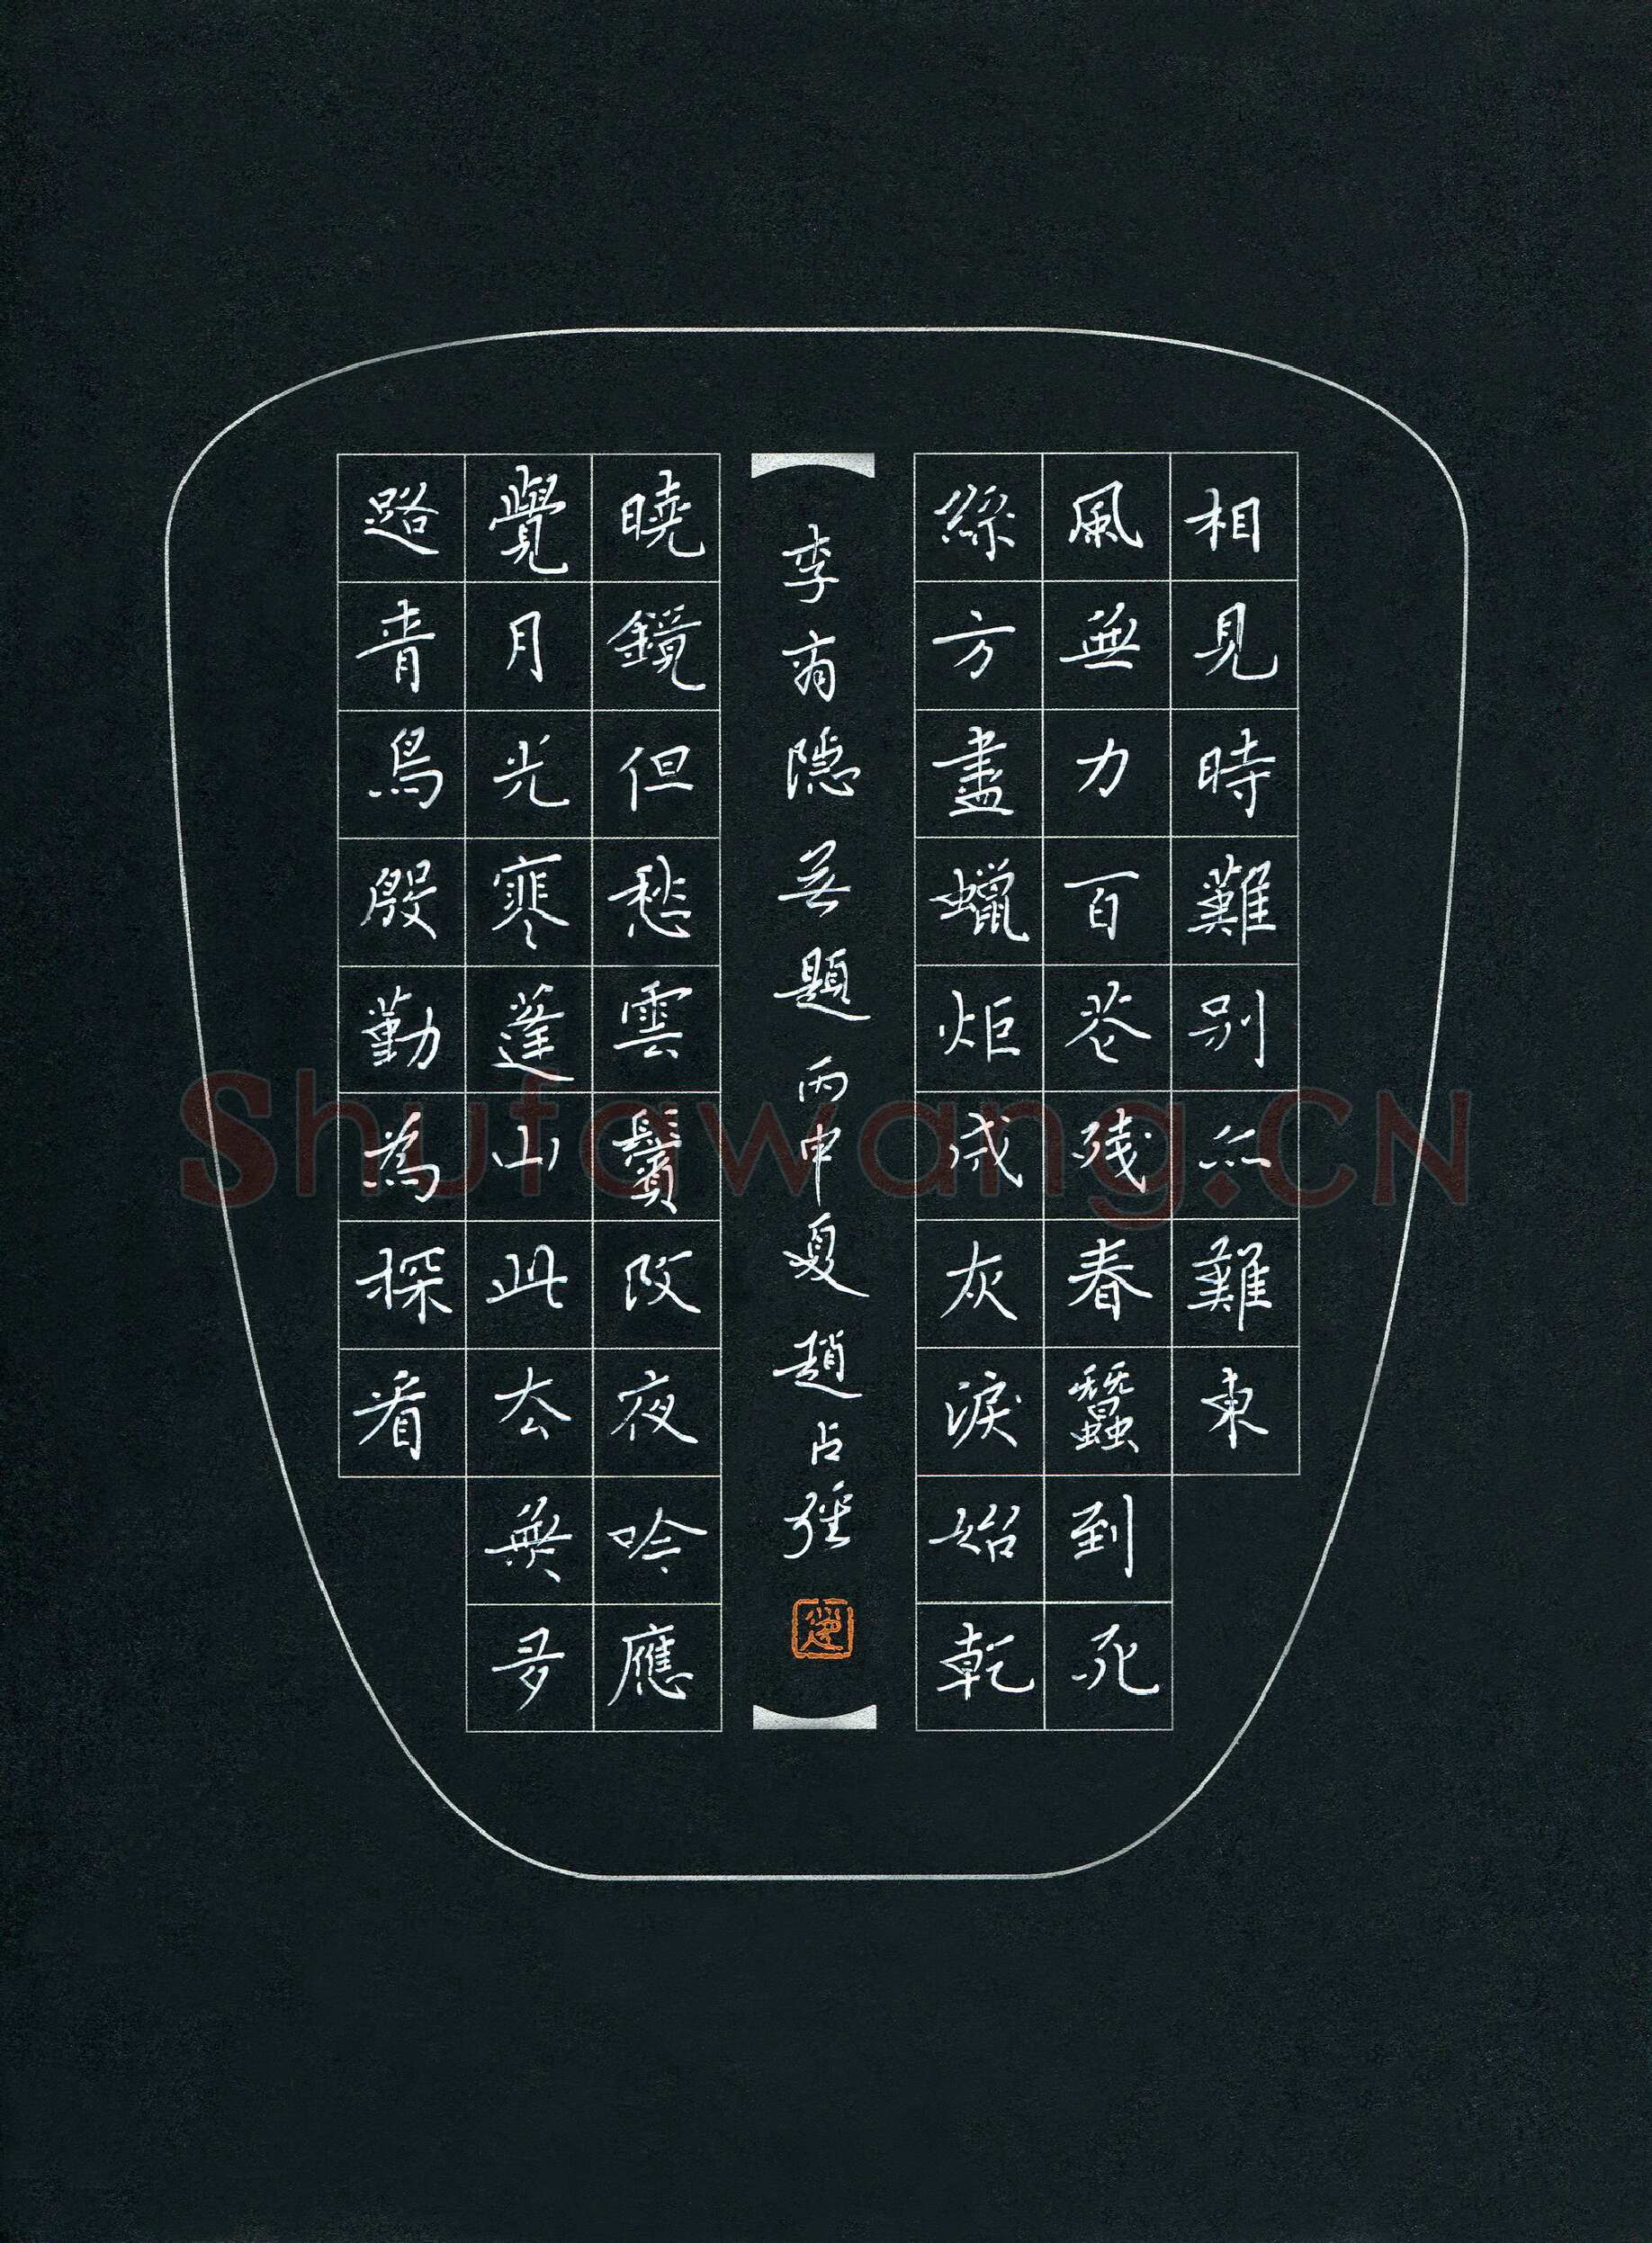 相見時難別亦難東
風無力百花残春蠶到死
絲方盡蠟炬成灰淚始乾
李商隱無題丙申夏趙占
曉鏡但愁雲鬢改夜吟應
覺月光寒蓬山此去無多
路青鳥殷勤為探看
Shufawang.CN